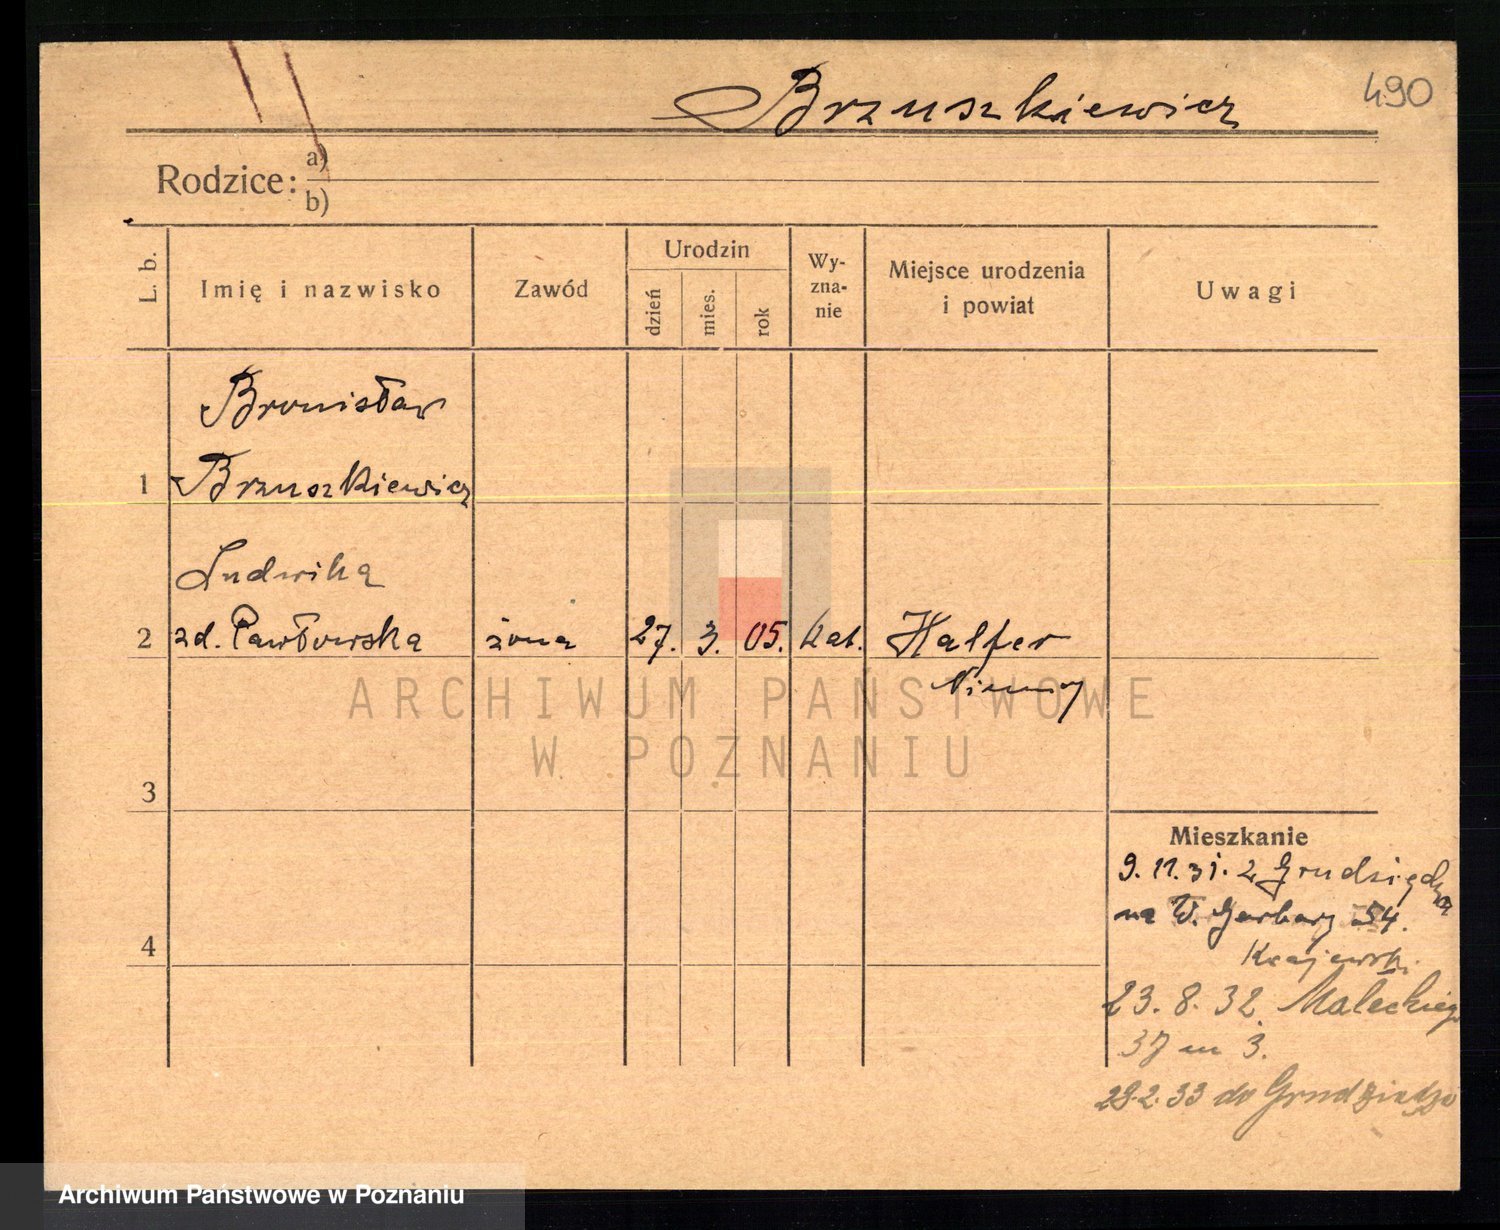 Brzuszkiewicz
490
Rodzice: a)
b)
L. b.
Imię i nazwisko
Zawód
Urodzin
dzień
mies.
rok
Wy-
zna-
nie
Miejsce urodzenia
i powiat
Uwagi
Bronisław
1 Brzuszkiewicz
Ludwika
2 zd. Pawłowska żona 27. 3. 05. kat. Halfer
Niemcy
ARCHIWUM PAŃSTWOWE
W POZNANIU
3
Mieszkanie
9. 11. 31. z Grudziędza
na W. Garbary 54.
4
Krajewski
23. 8. 32 Małeckiego
37 m 3.
29.2.33 do Grudziądza
Archiwum Państwowe w Poznaniu